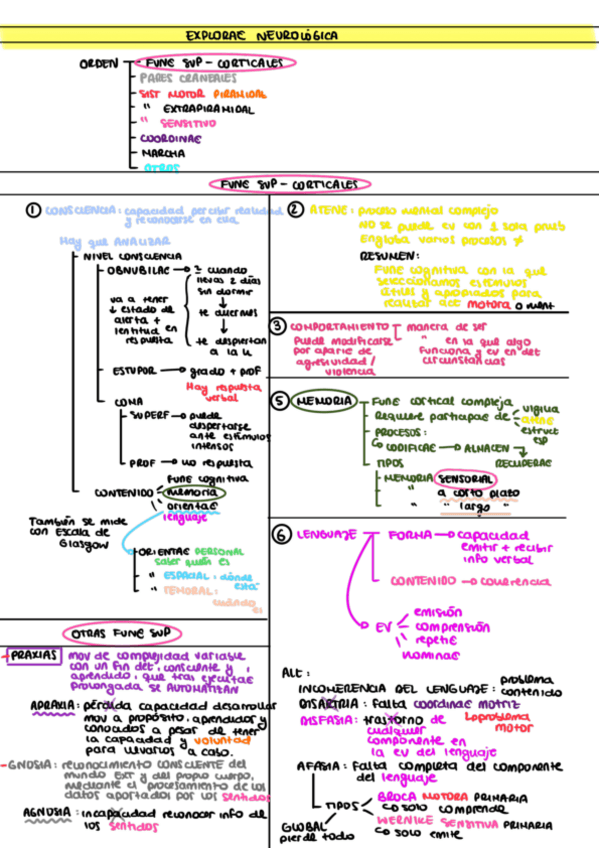 EXPLORAE NEUROLÓGICA
ORDEN
FUNE SUP - CORTICALES
PARES CRANEALES
SIST MOTOR PIRAMIDAL
" EXTRAPIRAMIDAL
" SENSITIVO
COORDINAE
MARCHA
OTROS
FUNE SUP - CORTICALES
① CONSCIENCIA: capacidad percibir realidad
y reconocerse en ella
Hay que ANALIZAR
NIVEL CONSCIENCIA
OBNUBILAE → = cuando
llevas 2 días
sin dormir
↓
te duermes
↓
te despiertan
a la u
va a tener
↓ estado de
alerta +
lentitud en
respuesta
ESTUPOR → grado + prof
Hay respuesta
verbal
COMA
SUPERF → puede
despertarse
ante estímulos
intensos
PROF → no respuesta
CONTENIDO
Fune cognitiva
memoria
orientae
lenguaje
También se mide
con Escala de
Glasgow
ORIENTAE PERSONAL
saber quién es
" ESPACIAL: dónde
está
" TEMORAL:
cuándo es
② ATENE: proceso mental complejo
No se puede ev con 1 sola prueb
Engloba varios procesos ≠
RESUMEN:
Fune cognitiva con la que
seleccionamos estímulos
útiles y apropiados para
realizar act motora o ment
③ COMPORTAMIENTO
manera de ser
" en la que algo
funciona y ev en det
circunstancias
Puede modificarse
por aparie de
agresividad /
violencia
⑤ MEMORIA
Fune cortical compleja
Requiere participae de
vigilia
atene
estruct
esp
PROCESOS:
CODIFICAE → ALMACEN
RECUPERAE
TIPOS
MEMORIA SENSORIAL
" a corto plazo
" " largo "
⑥ LENGUAJE
FORMA → capacidad
emitir + recibir
info verbal
CONTENIDO → coherencia
EV
emisión
comprensión
repetie
nominae
Alt:
INCOHERENCIA DEL LENGUAJE: problema contenido
DISARTRIA: Falta coordinae motriz
problema
motor
DISFASIA: trastorno de
cualquier
componente en
la ev del lenguaje
AFASIA: Falta completa del componente
del lenguaje
TIPOS
BROCA MOTORA PRIMARIA
solo comprende
WERNICKE SENSITIVA PRIMARIA
solo emite
GLOBAL
pierde todo
OTRAS FUNE SUP
PRAXIAS
mov de complejidad variable
con un fin det, consciente y
aprendido, que tras ejecutae
prolongada se AUTOMATIZAN
APRAXIA: pérdida capacidad desarrollar
mov a propósito, aprendidos y
conocidos a pesar de tener
la capacidad y voluntad
para llevarlos a cabo.
GNOSIA: reconocimiento CONSCIENTE del
mundo EXT y del propio cuerpo,
mediante el procesamiento de los
datos aportados por los sentidos
AGNOSIA: incapacidad reconocer info de
los sentidos